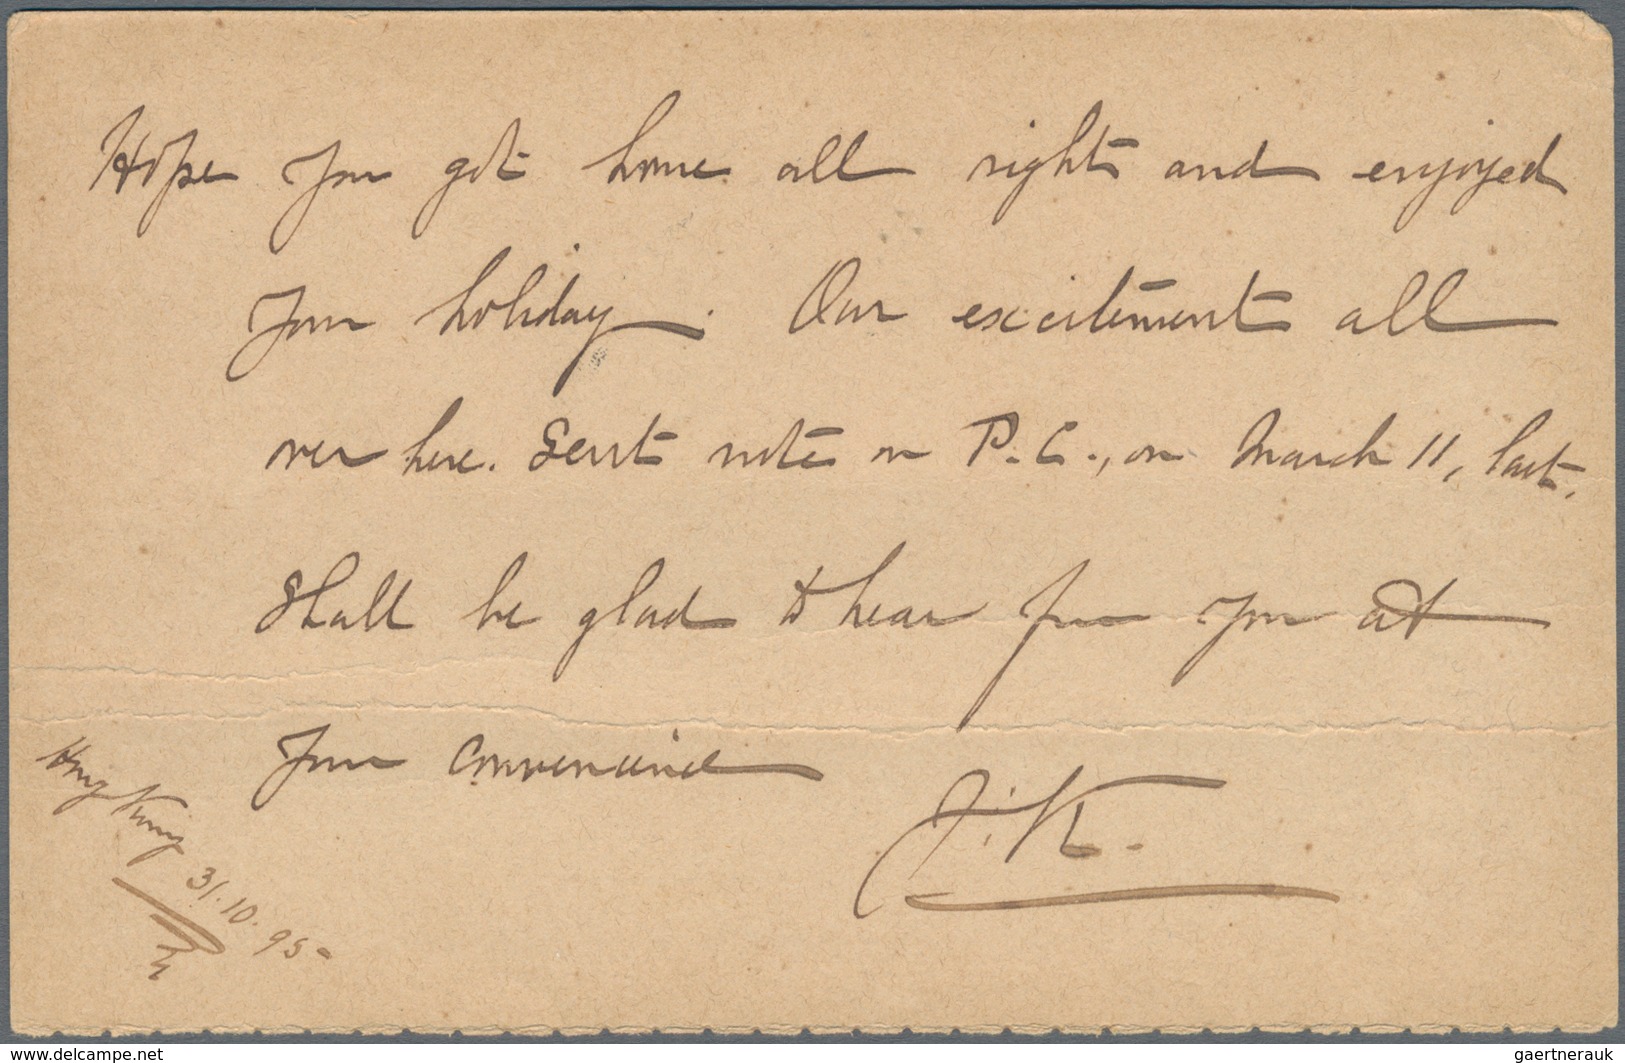 Hope you got home all right and enjoyed
your holiday. Our excitement all
over here. Sent note on P.C., on March 11, last.
Shall be glad to hear from you at
your convenience
J.K.
Hong Kong
31.10.95-
www.delcampe.net
gaertnerauk